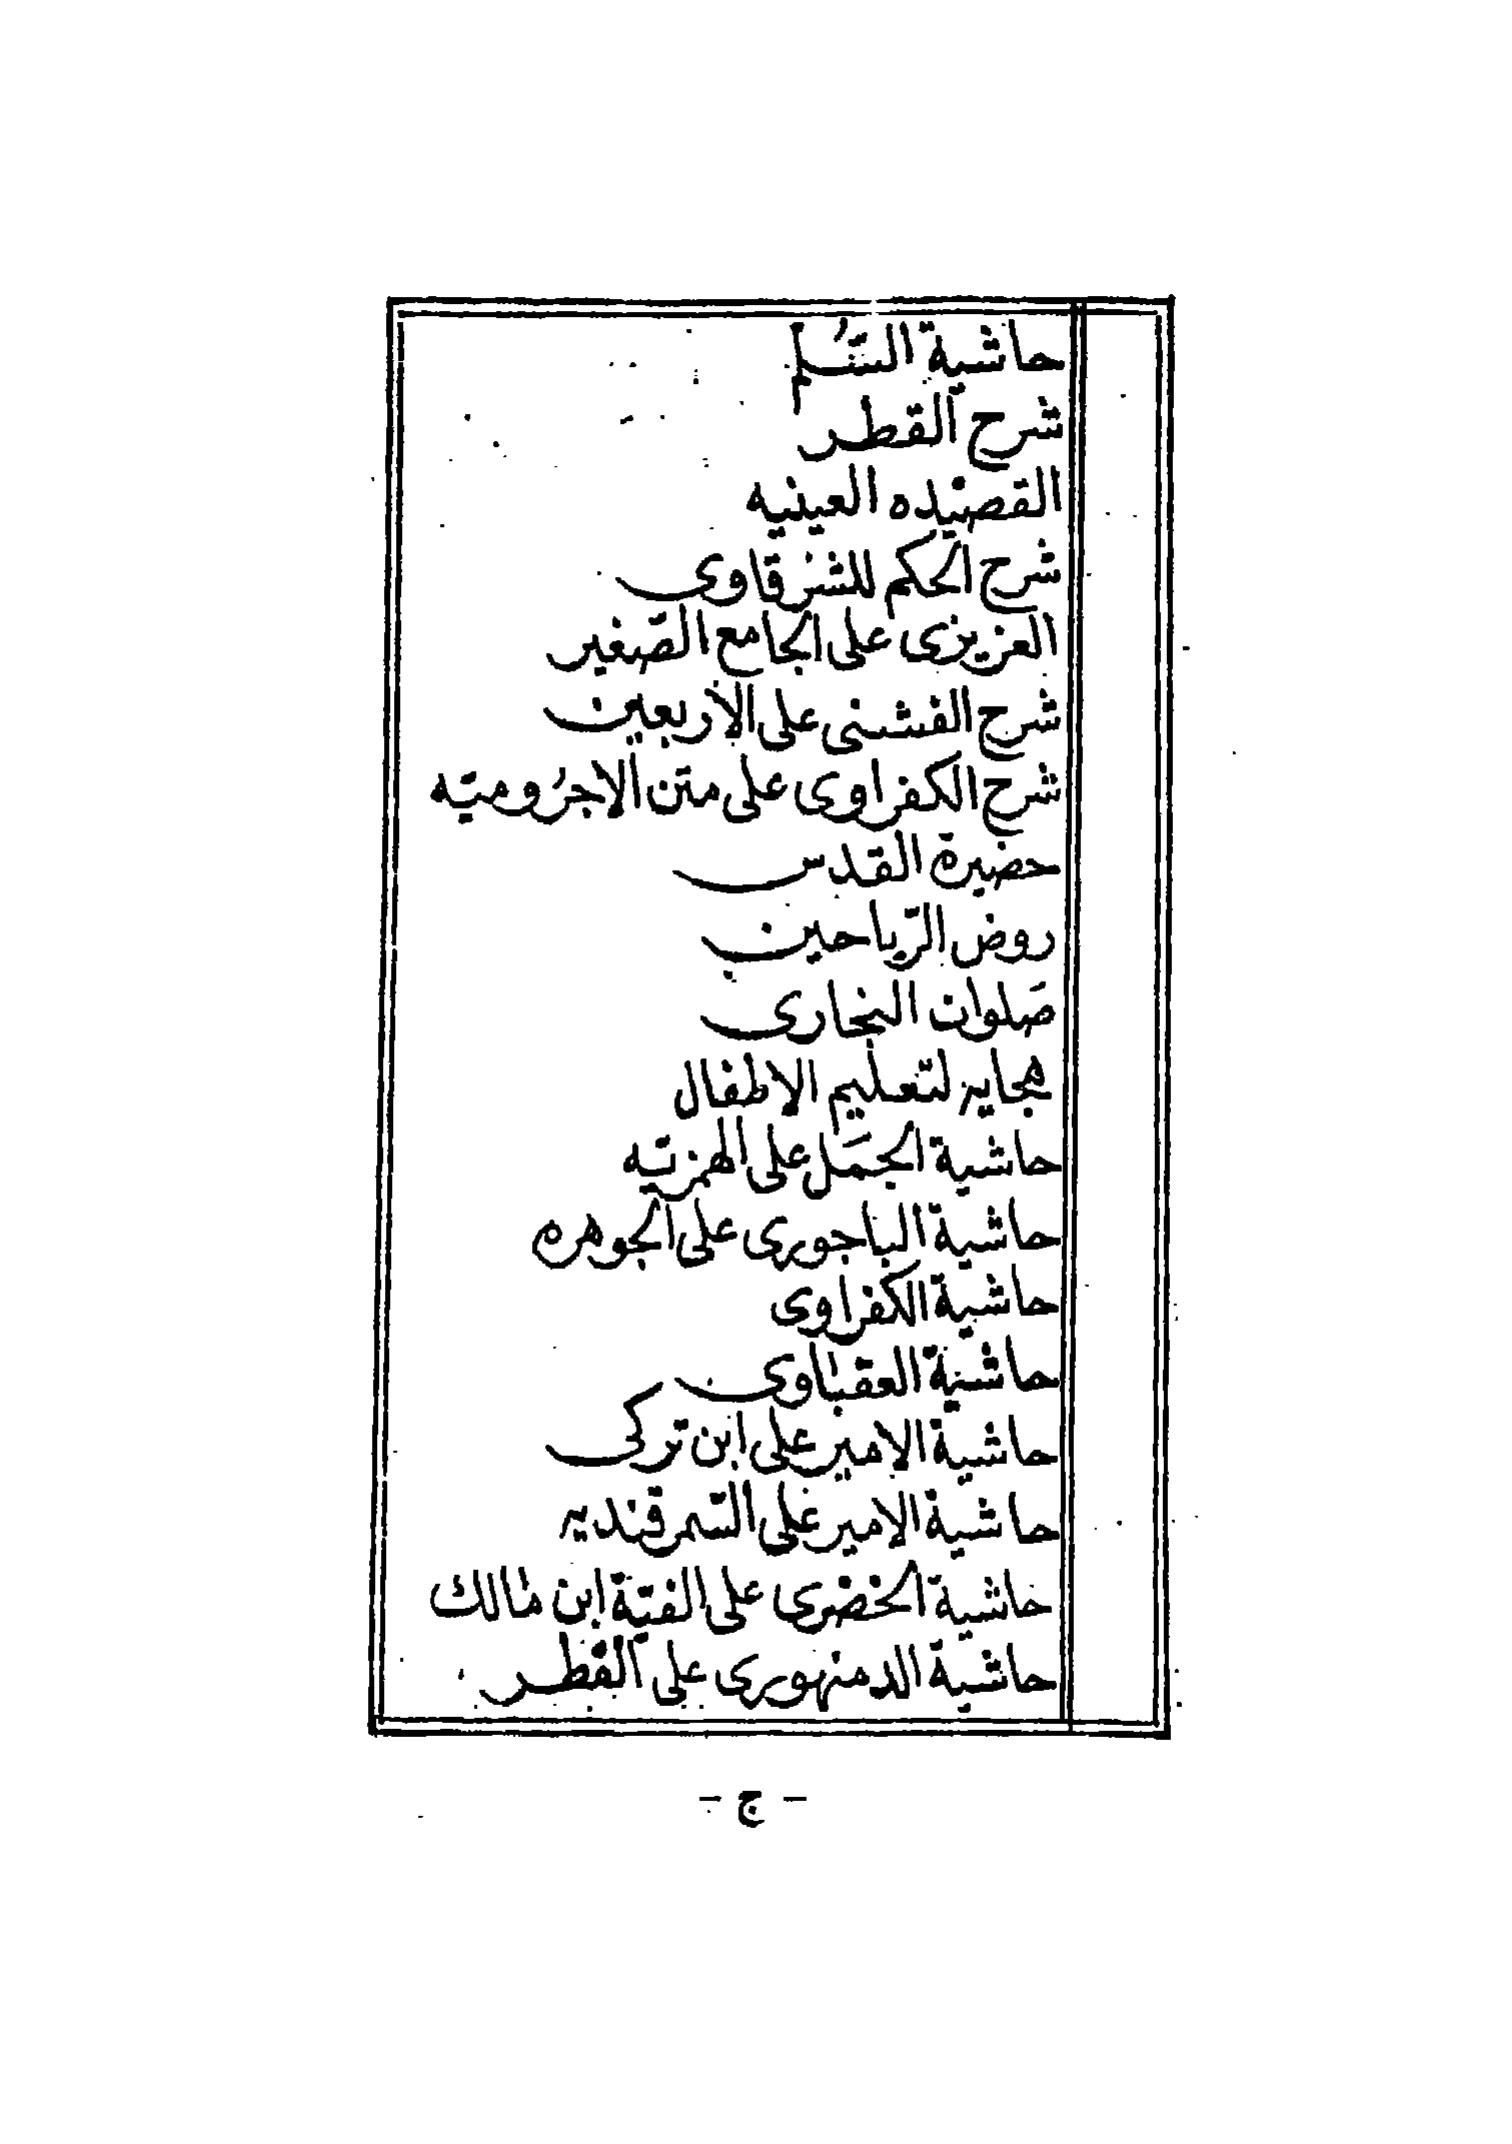 حاشية السُّلم
شرح القطر
القصيده العينيه
شرح الحكم للشرقاوى
العزيزى على الجامع الصّغير
شرح الفشنى على الأربعين
شرح الكفراوى على متن الاجرُوميّه
حضيرة القدس
روض الرّياحين
صَلوان البخارى
هجايه لتعليم الاطفال
حاشية الجمَل على الهمزيّه
حاشية الباجورى على الجوهره
حاشية الكفراوى
حاشية العقباوى
حاشية الامير على ابن تركى
حاشية الامير على السّمرقنديه
حاشية الخضرى على الفيّة ابن مالك
حاشية الدمنهورى على القطر
- ج -